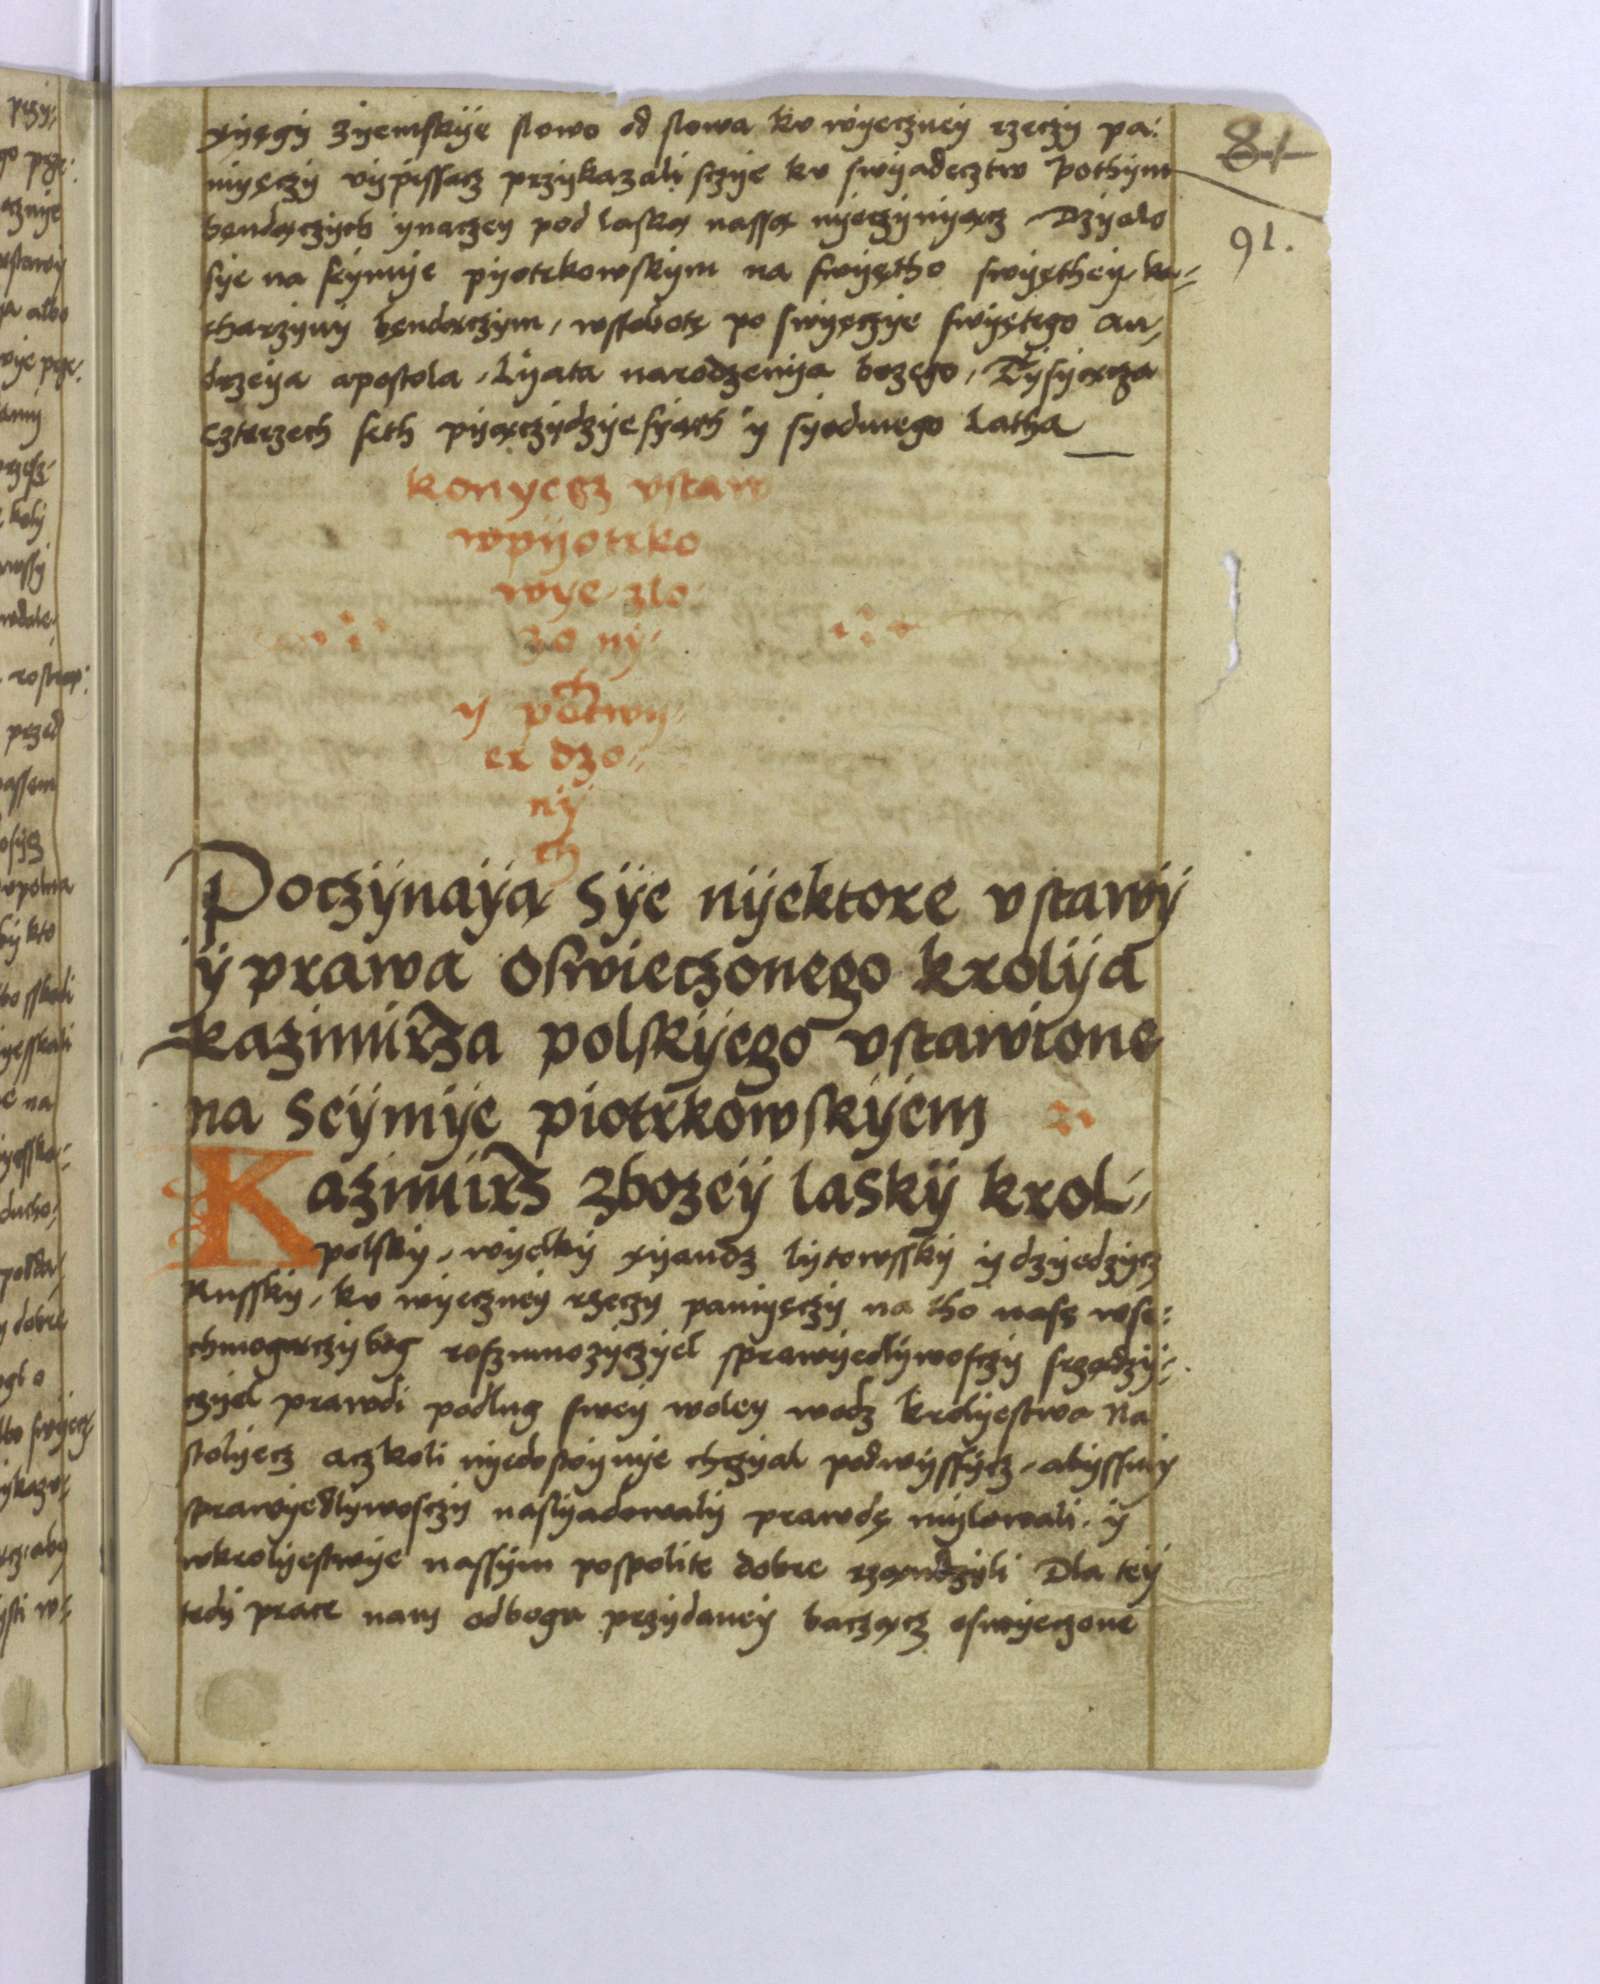 xyęgy zyemskye slowo od slowa ku wyeczney rzeczy pa:
myęczy vypyssacz przykazali sczye ku swyadecztw pothym
bęndączych ynaczey pod laską nassą nyeczynyącz Dzyalo
sye na seymye pyotrkowskym na swyętho swyęthey ka-
tharzyny bęndączym, wsobotę po swyęczye swyętego an,
drzeya apostola, Lyata narodzenya bozego, Tysyącza
czterzech seth pyączydzyesyąth y syodmego Latha
konyecz vstaw
wpyotrko
wye zlo
zo ny,
ch
y potwy,
er dzo,,
ny
ch
Poczynayą sye nyektore vstawy
y prawa oswieczonego krolya
kazimirza polskyego vstawione
na seymye piotrkowskyem
Kazimirz zbozey lasky krol,
polsky, wyelky xyandz lytowssky y dzyedzycz
Russky, ku wyeczney rzeczy pamyęczy na tho nasz wse:
chmogączy bog rozmnozyczyel sprawyedlywosczy srządzy,,
czyel prawdi podlug swey woley wodz krolyestwa na
stolyecz aczkoli nyedostoynye chczyal podwyssycz, abyssmy
sprawyedlywosczy naslyadowaly prawdę mylowali, y
wkrolyestwye nassym pospolite dobre rząndzyli Dla tey
tedy prace nam odboga przydaney baczącz oswyeczone
84
91.